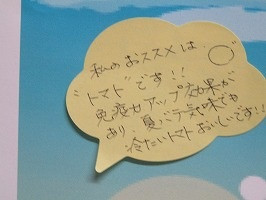 私のおススメは、
"トマト"です!!
免疫力アップ効果が
あり、夏バテ気味でも
冷たいトマトおいしいです!!